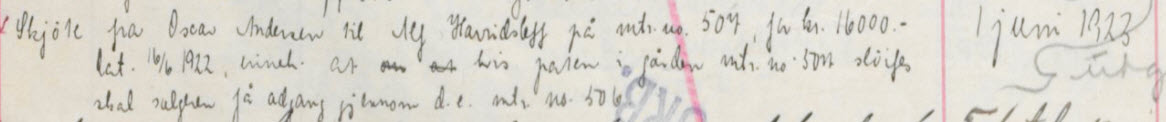 Skjöte fra Oscar Andersen til Alf Harridsleff på mtr. no. 507, for kr. 16000.- 1 juni 1923
dat. 16/6 1922, inneh. at hvis parten i gården mtr. no. 507 slöifes
skal sælgeren få adgang gjennom d. e. mtr. no. 506.